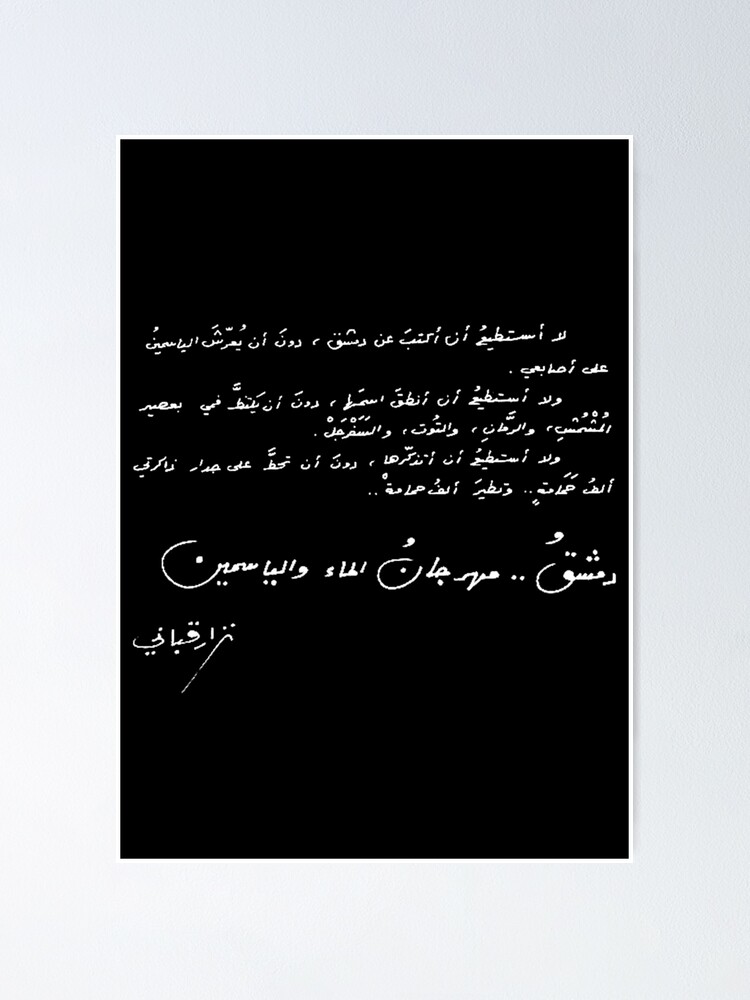 لا أستطيعُ أن أكتبَ عن دمشق ، دونَ أن يُعرّشَ الياسمينُ
على أصابعي .
ولا أستطيعُ أن أنطقَ اسمَها ، دونَ أن يكتظَّ فمي بعصير
المُشْمُشِ ، والرمَّانِ ، والتُوت ، والسَفَرْجَلْ .
ولا أستطيعُ أن أتذكّرها ، دونَ أن تحطَّ على جدار ذاكرتي
ألفُ حَمَامةٍ .. وتطيرَ ألفُ حمامةْ ..
دمشقُ .. مهرجانُ الماء والياسمين
نزار قباني